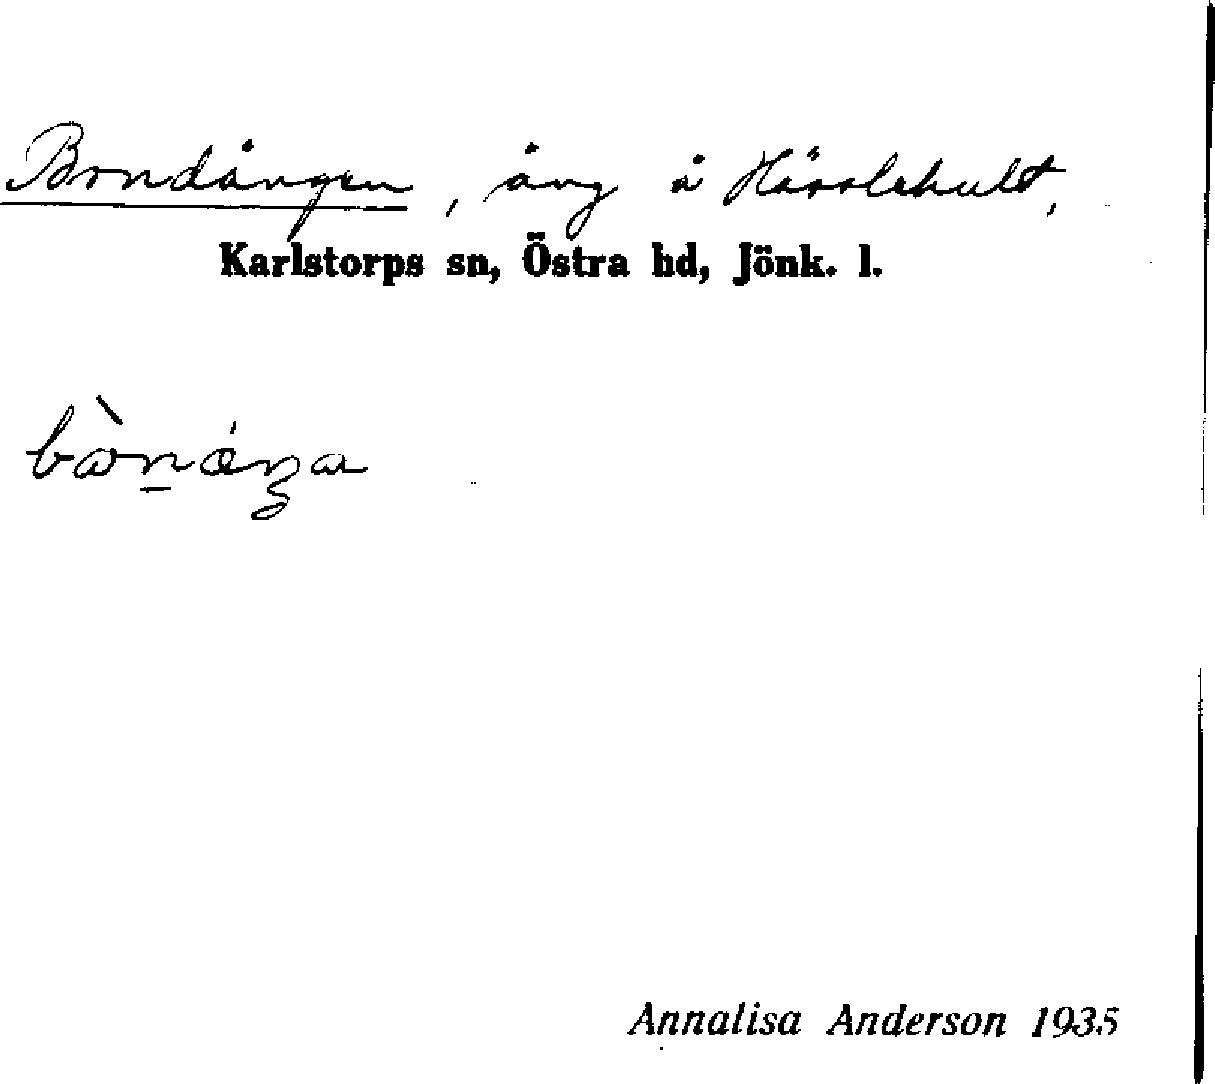 Bondängen, äng å Hässlehult,
Karlstorps sn, Östra hd, Jönk. l.
Annalisa Anderson 1935